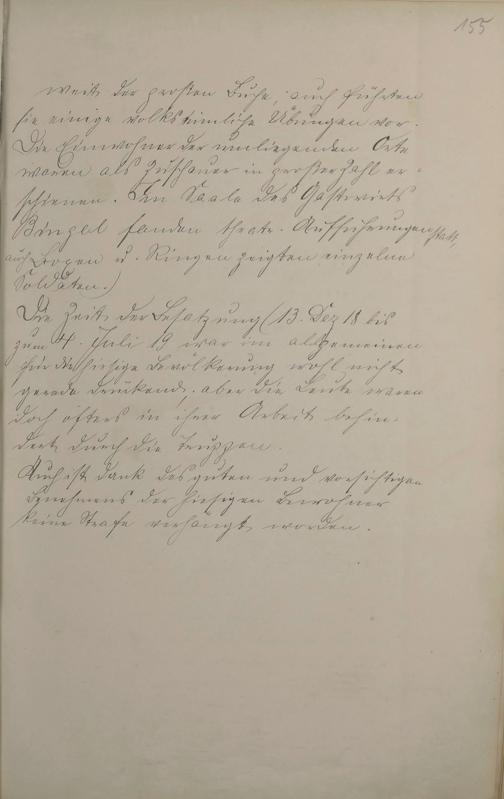 155
weit der großen Buche; auch führten
sie einige volkstümliche Übungen vor.
Die Einwohner der umliegenden Orte
waren als Zuschauer in großer Zahl er-
schienen. Im Saale des Gastwirts
Bingel fanden theatr. Aufführungen statt,
auch Boxen u. Ringen zeigten einzelne
Soldaten.)
Die Zeit der Besatzung (13. Dez 18 bis
zum 4. Juli 19 war im allgemeinen
für die hiesige Bevölkerung wohl nicht
gerade drückend; aber die Leute waren
doch öfters in ihrer Arbeit behin-
dert durch die Truppen.
Auch ist dank des guten und vorsichtigen
Benehmens der hiesigen Bewohner
keine Strafe verhängt worden.